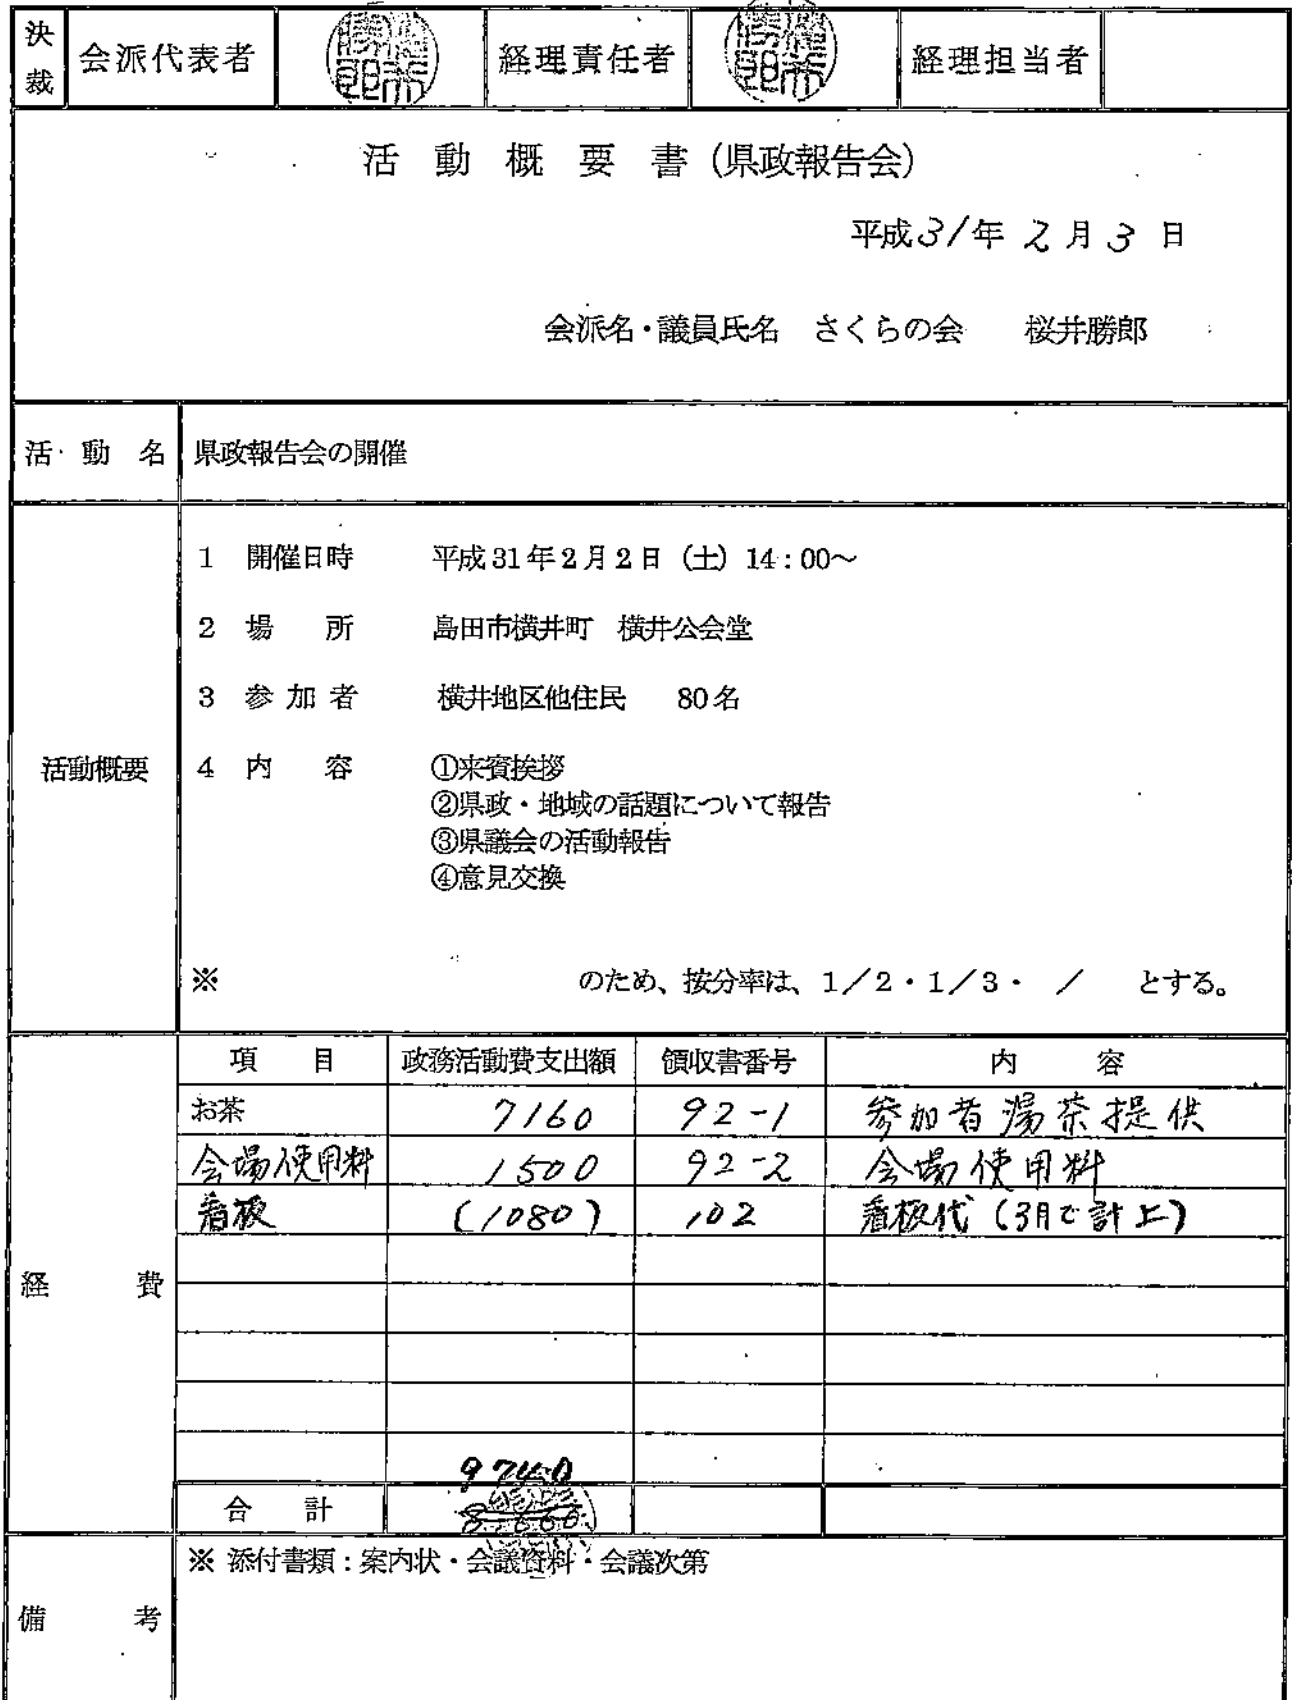 決裁 会派代表者 経理責任者 経理担当者
活 動 概 要 書（県政報告会）
平成31年 2月 3 日
会派名・議員氏名 さくらの会 桜井勝郎
活 動 名 県政報告会の開催
活動概要
1 開催日時 平成31年2月2日（土）14：00～
2 場 所 島田市横井町 横井公会堂
3 参 加 者 横井地区他住民 80名
4 内 容 ①来賓挨拶
②県政・地域の話題について報告
③県議会の活動報告
④意見交換
※ のため、按分率は、1／2・1／3・ ／ とする。
経 費
項 目 政務活動費支出額 領収書番号 内 容
お茶 7160 92-1 参加者湯茶提供
会場使用料 1500 92-2 会場使用料
看板 (1080) 102 看板代(3月で計上)
9740
合 計 8,660
備 考
※ 添付書類：案内状・会議資料・会議次第